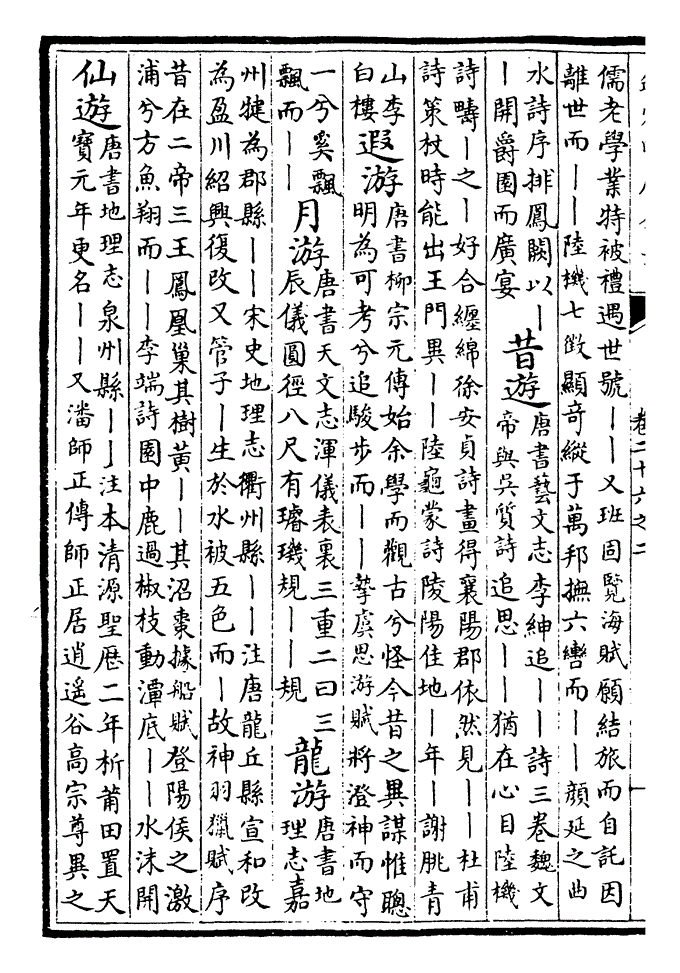 卷二十六之二
儒老學業特被禮遇世號丨丨又班固覽海賦願結旅而自託因
離世而丨丨陸機七徵顯奇縱于萬邦撫六轡而丨丨顏延之曲
水詩序排鳳闕以丨
丨開爵園而廣宴
昔遊
唐書藝文志李紳追丨丨詩三卷魏文
帝與吳質詩追思丨丨猶在心目陸機
詩疇丨之丨好合纏綿徐安貞詩畫得襄陽郡依然見丨丨杜甫
詩策杖時能出王門異丨丨陸龜蒙詩陵陽佳地丨年丨謝朓青
山李
白樓
遐游
唐書柳宗元傳始余學而觀古兮怪今昔之異謀惟聰
明為可考兮追駿步而丨丨摯虞思游賦將澄神而守
一兮奚飄
飄而丨丨
月游
唐書天文志渾儀表裏三重二曰三
辰儀圓徑八尺有璿璣規丨丨規
龍游
唐書地
理志嘉
州犍為郡縣丨丨宋史地理志衢州縣丨丨注唐龍丘縣宣和改
為盈川紹興復改又管子丨生於水被五色而丨故神羽獵賦序
昔在二帝三王鳳凰巢其樹黃丨丨其沼棗據船賦登陽侯之激
浦兮方魚翔而丨丨李端詩園中鹿過椒枝動潭底丨丨水沫開
仙遊
唐書地理志泉州縣丨丨注本清源聖厯二年析莆田置天
寶元年更名丨丨又潘師正傳師正居逍遥谷高宗尊異之